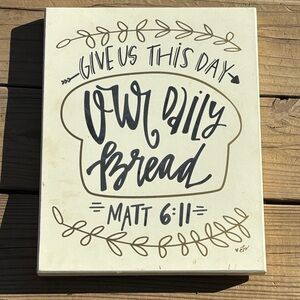 GIVE US THIS DAY
OUR DAILY
BREAD
=MATT 6:11=